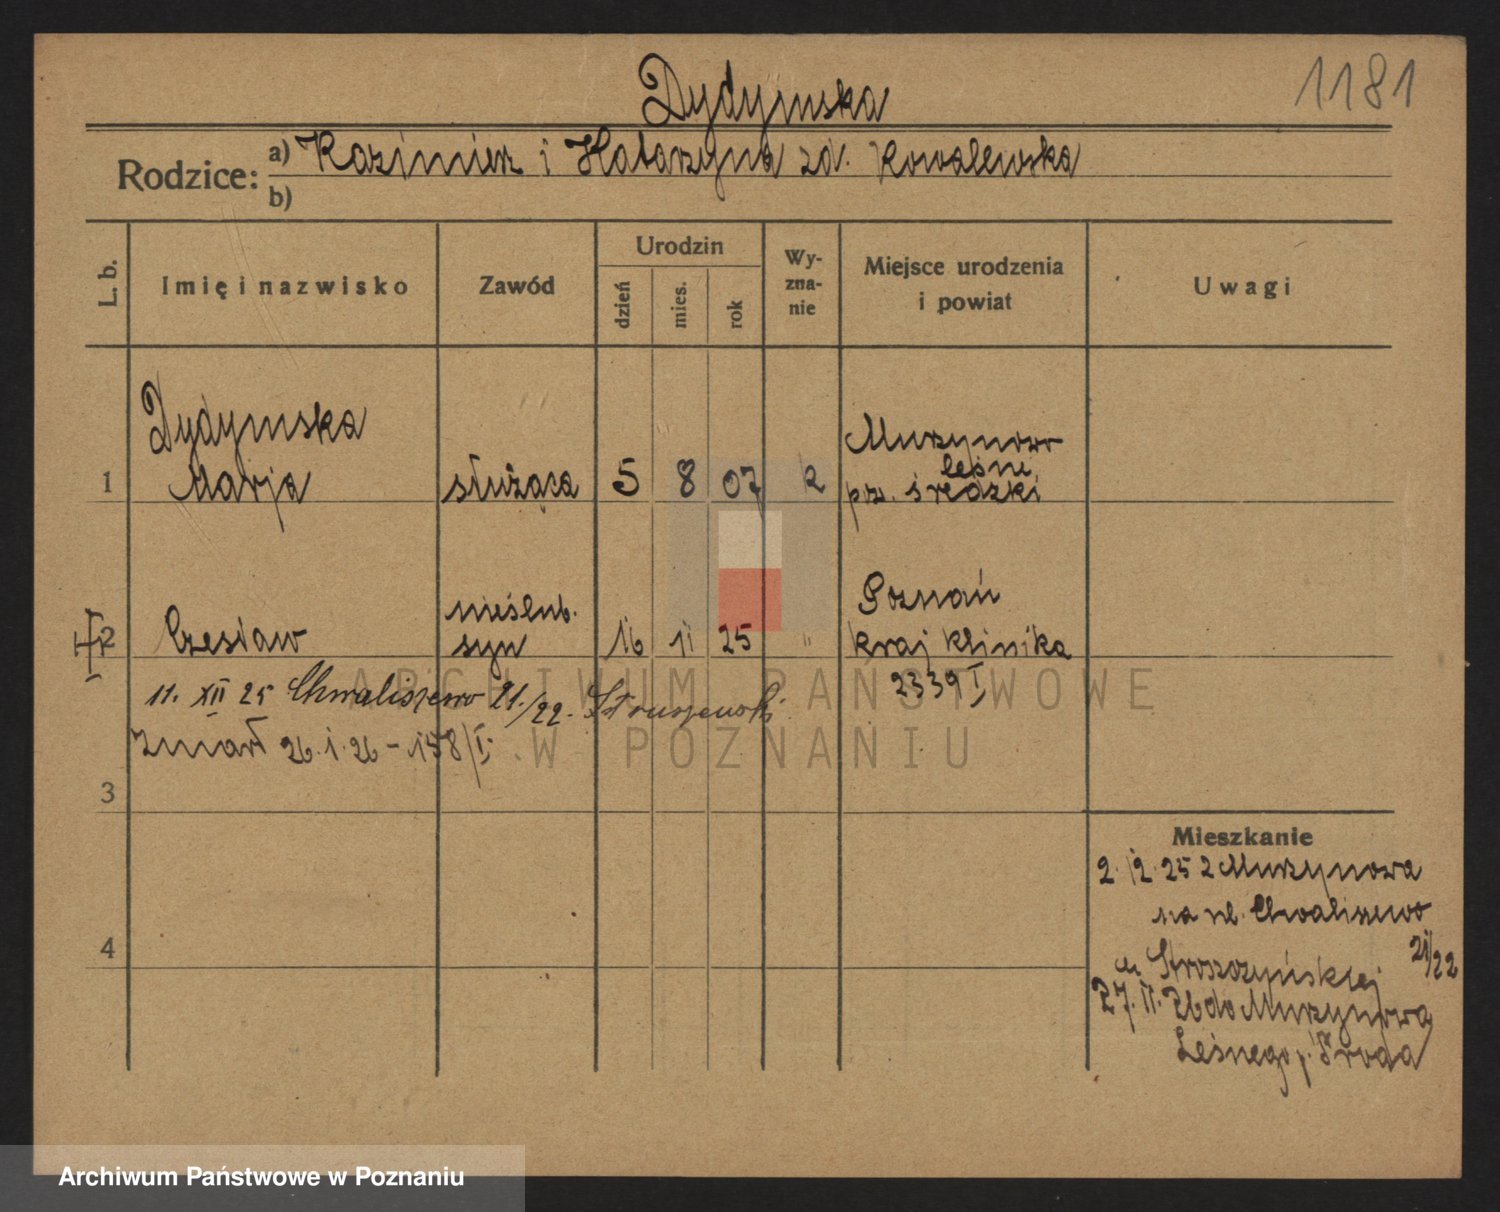 Dydymska
1181
Rodzice: a) Kazimierz i Katarzyna zd. Kowalewska
b)
L. b.
Imię i nazwisko
Zawód
Urodzin
dzień
mies.
rok
Wy-
zna-
nie
Miejsce urodzenia
i powiat
Uwagi
Dydymska
1 Marja służąca 5 8 07
Murzynowo
leśne
pow. średzki
2 Czesław
nieślub.
syn
16 11 25 "
Poznań
Kraj Klinika
2339 I
11. XII 25 Chwaliszewo 21./22.
zmarł 26.1.26 - 158/I
3
4
Mieszkanie
2.12.25 z Murzynowa
na ul. Chwaliszewo
21/22
u Stroszczyńskiej
27.II.26 do Murzynowa
Leśnego p. Środa
ARCHIWUM PAŃSTWOWE
W POZNANIU
Archiwum Państwowe w Poznaniu